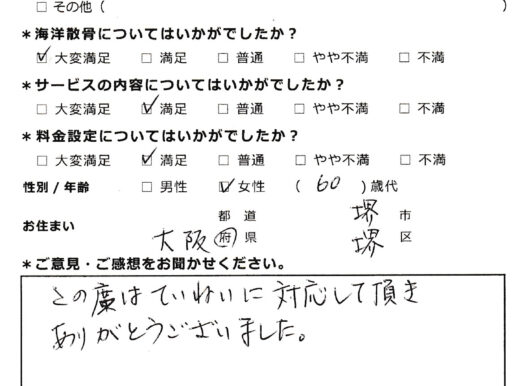 □ その他（ ）
＊海洋散骨についてはいかがでしたか？
☑ 大変満足 □ 満足 □ 普通 □ やや不満 □ 不満
＊サービスの内容についてはいかがでしたか？
□ 大変満足 ☑ 満足 □ 普通 □ やや不満 □ 不満
＊料金設定についてはいかがでしたか？
□ 大変満足 ☑ 満足 □ 普通 □ やや不満 □ 不満
性別 / 年齢 □ 男性 ☑ 女性 （ 60 ）歳代
都 道 堺 市
お住まい
大阪 府 県 堺 区
＊ご意見・ご感想をお聞かせください。
この度はていねいに対応して頂き
ありがとうございました。